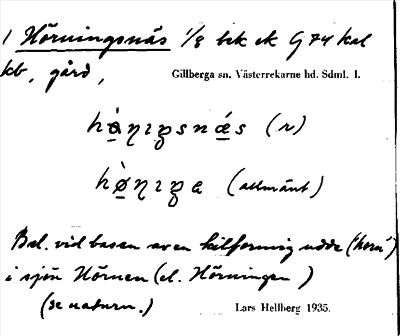 1 Hörningsnäs 1/8 bek ek G 74 Kal
kb, gård,
Gillberga sn. Västerrekarne hd. Sdml. 1.
(r)
(allmänt)
Bel. vid basen av en kilformig udde ('horn')
i sjön Hörnen (el. Hörningen)
(se naturn.)
Lars Hellberg 1935.